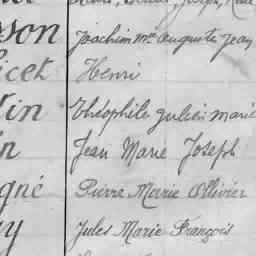 sson Joachim Mie Auguste Jean
icet Henri
in Théophile Julien Marie
n Jean Marie Joseph
gné Pierre Marie Ollivier
y Jules Marie François